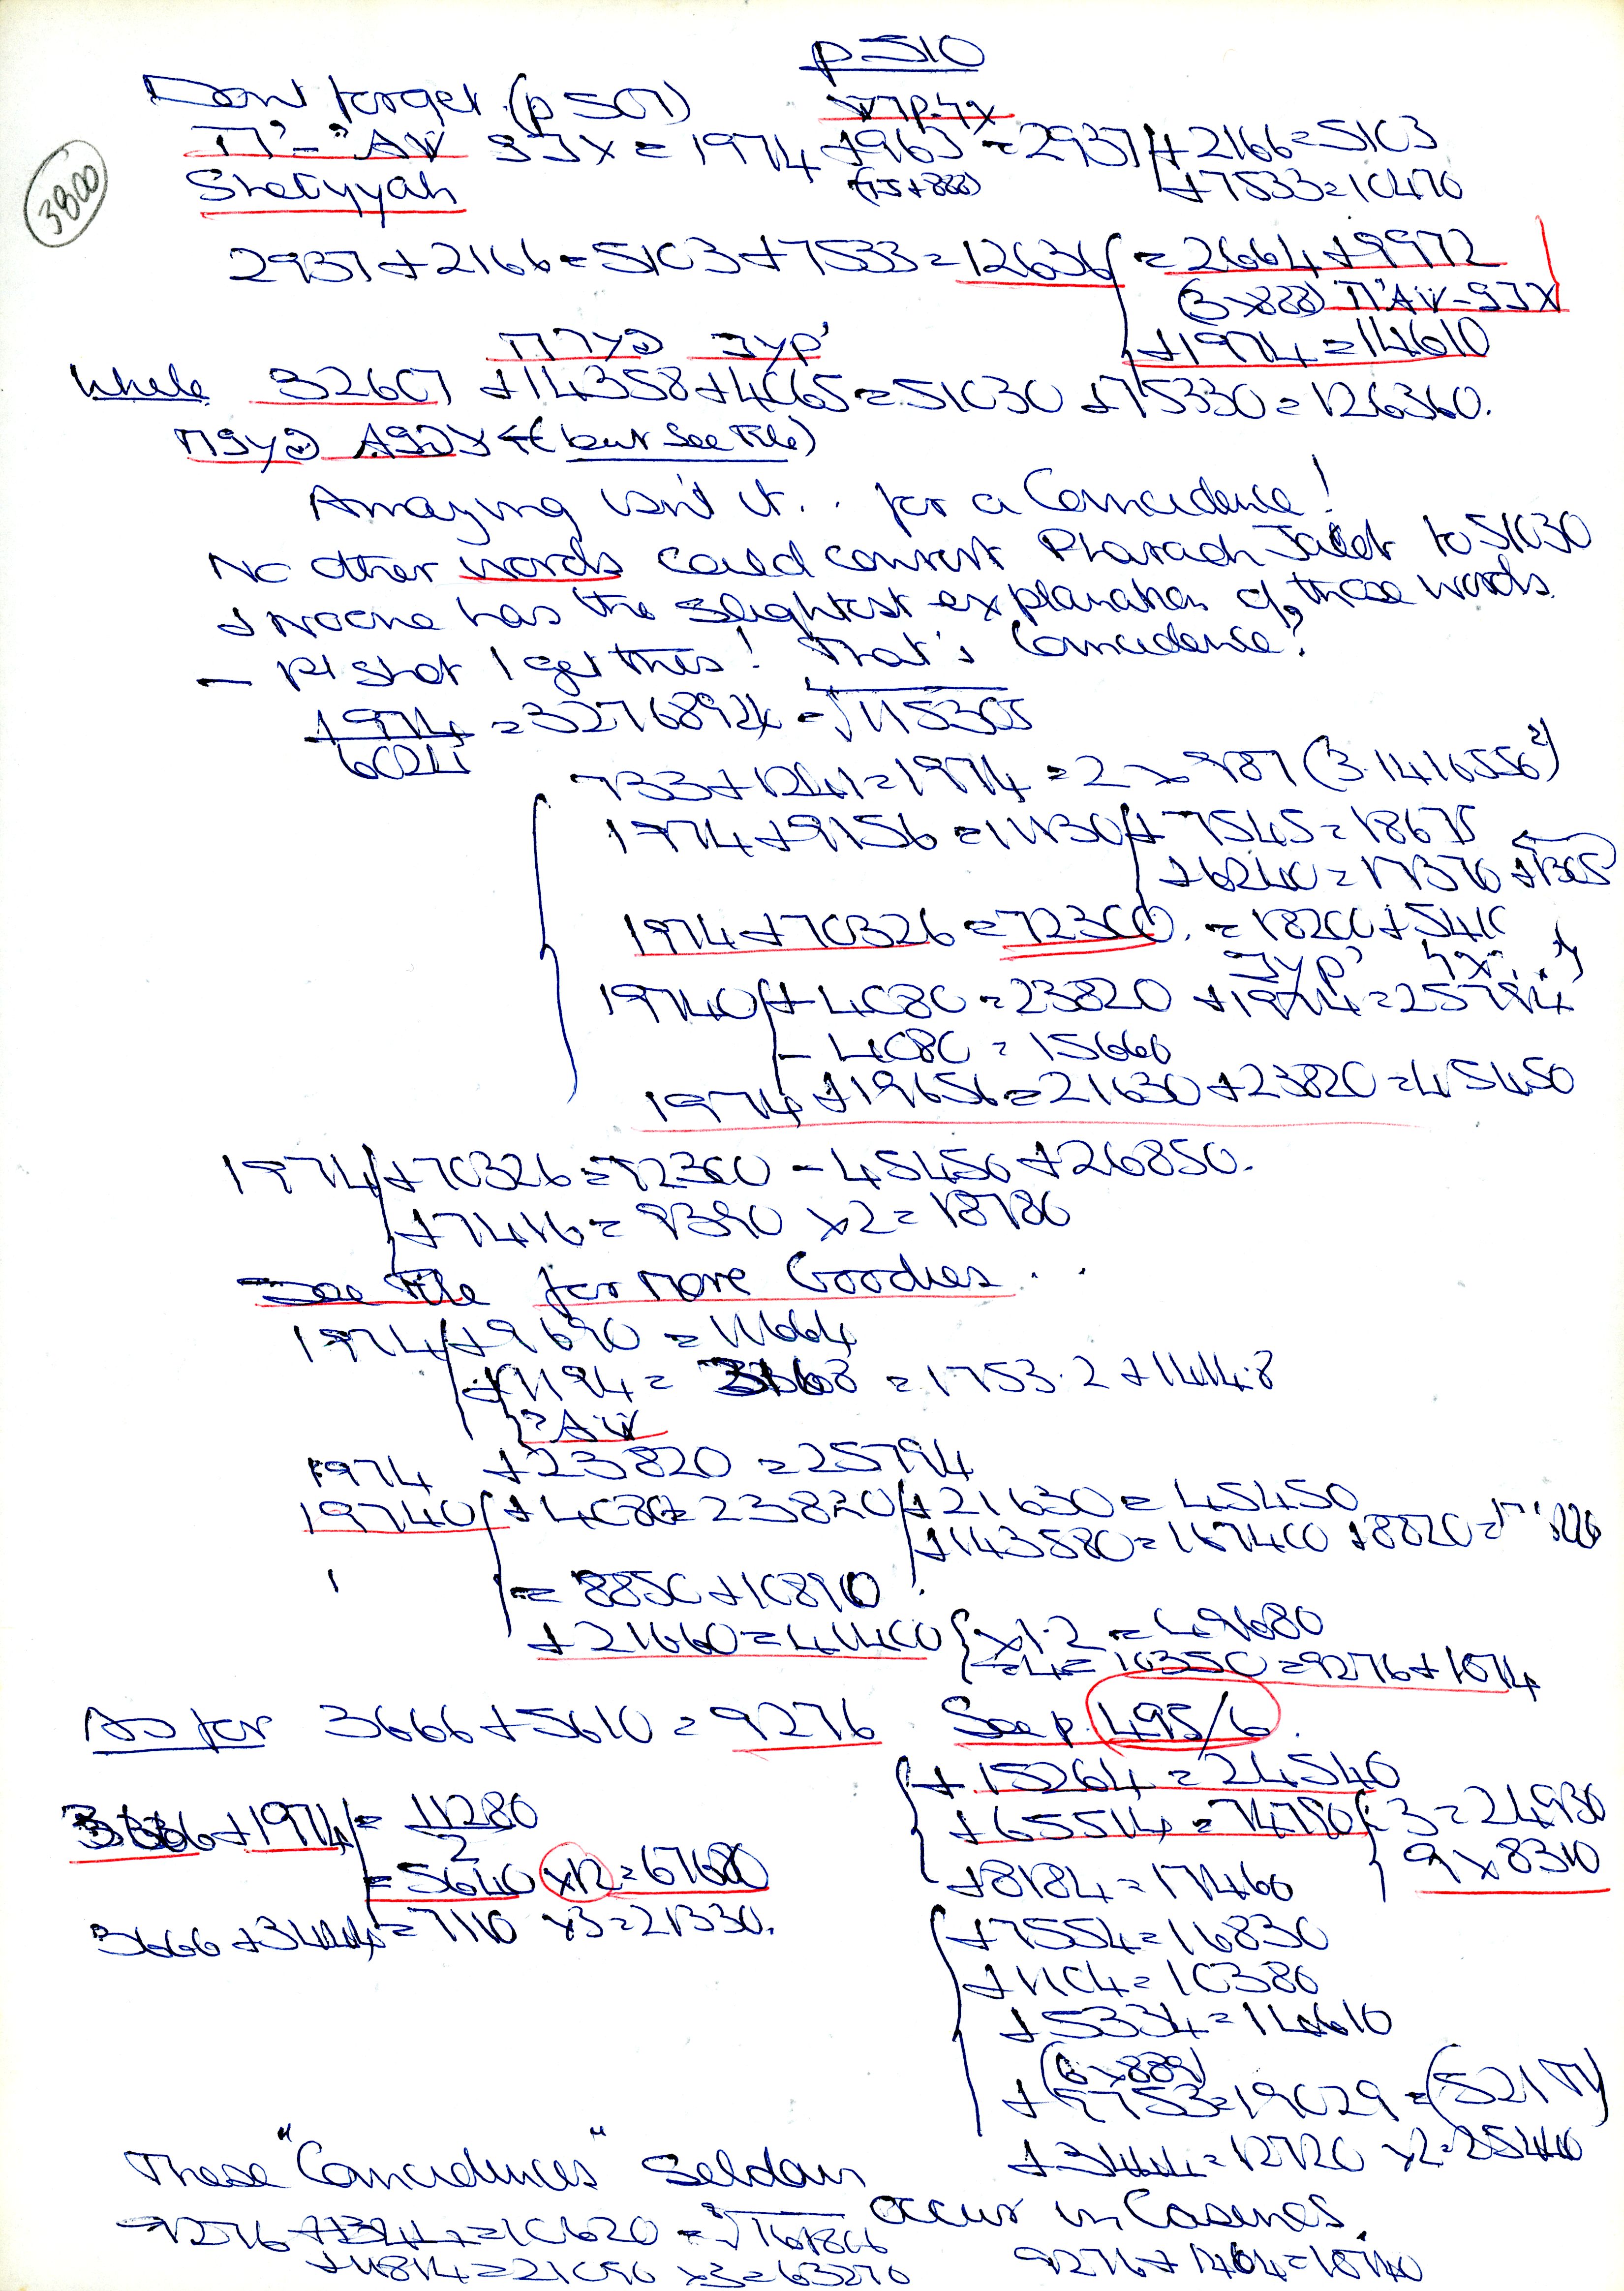 p510
Dont forget (p 507)
3800
= 1974 + 963 = 2937 + 2166 = 5103
(75+888) + 7533 = 10470
Shetiyyah
2937 + 2166 = 5103 + 7533 = 12636 = 2664 + 9972
(3 x 888)
+ 1974 = 14610
While 32607 + 14358 + 4065 = 51030 + 75330 = 126360.
(but See File)
Amazing isn't it . . for a Coincidence!
No other words could convert Pharaoh Jacob to 51030
& Noone has the slightest explanation of those words.
— 1st shot I get this! That's Coincidence?
1974 = 3276892 = √
6024
733 + 1241 = 1974 = 2 x 987 (3.1416556²)
1974 + 9156 = 11130 + 7545 = 18675
+ 6240 = 17370 + 1305
1974 + 70326 = 72300. = 18200 + 5410
19740 + 4080 = 23820 + 1974 = 25794
- 4080 = 15660
1974 + 19656 = 21630 + 23820 = 45450
1974 + 70326 = 72300 = 45450 + 26850.
+ 7416 = 9390 x 2 = 18780
See File for More Goodies . .
1974 + 9690 = 11664
+ 1194 = 3168 = 1753.2 + 1414.8
1974 + 23820 = 25794
19740 + 4080 = 23820 + 21630 = 45450
+ 143580 = 167400 + 8820 =
= 8850 + 10890
+ 21660 = 41400 x 1.2 = 49680
÷ 4 = 10350 = 9276 + 1074
As for 3666 + 5610 = 9276 See p. 495/6.
+ 15264 = 24540
+ 1974 = 11280
2
+ 65514 = 74790 ÷ 3 = 24930
= 5640 x 12 = 67680
9 x 8310
+ 8184 = 17460
3666 + 3444 = 7110 x 3 = 21330.
+ 7554 = 16830
+ 1104 = 10380
+ 5334 = 14610
(6 x 889)
+ 9753 = 19029 =
+ 3444 = 12720 x 2 = 25440
These "Coincidences" Seldom
occur in Casinos.
9276 + 1344 = 10620 =
+ 11814 = 21090 x 3 = 63270